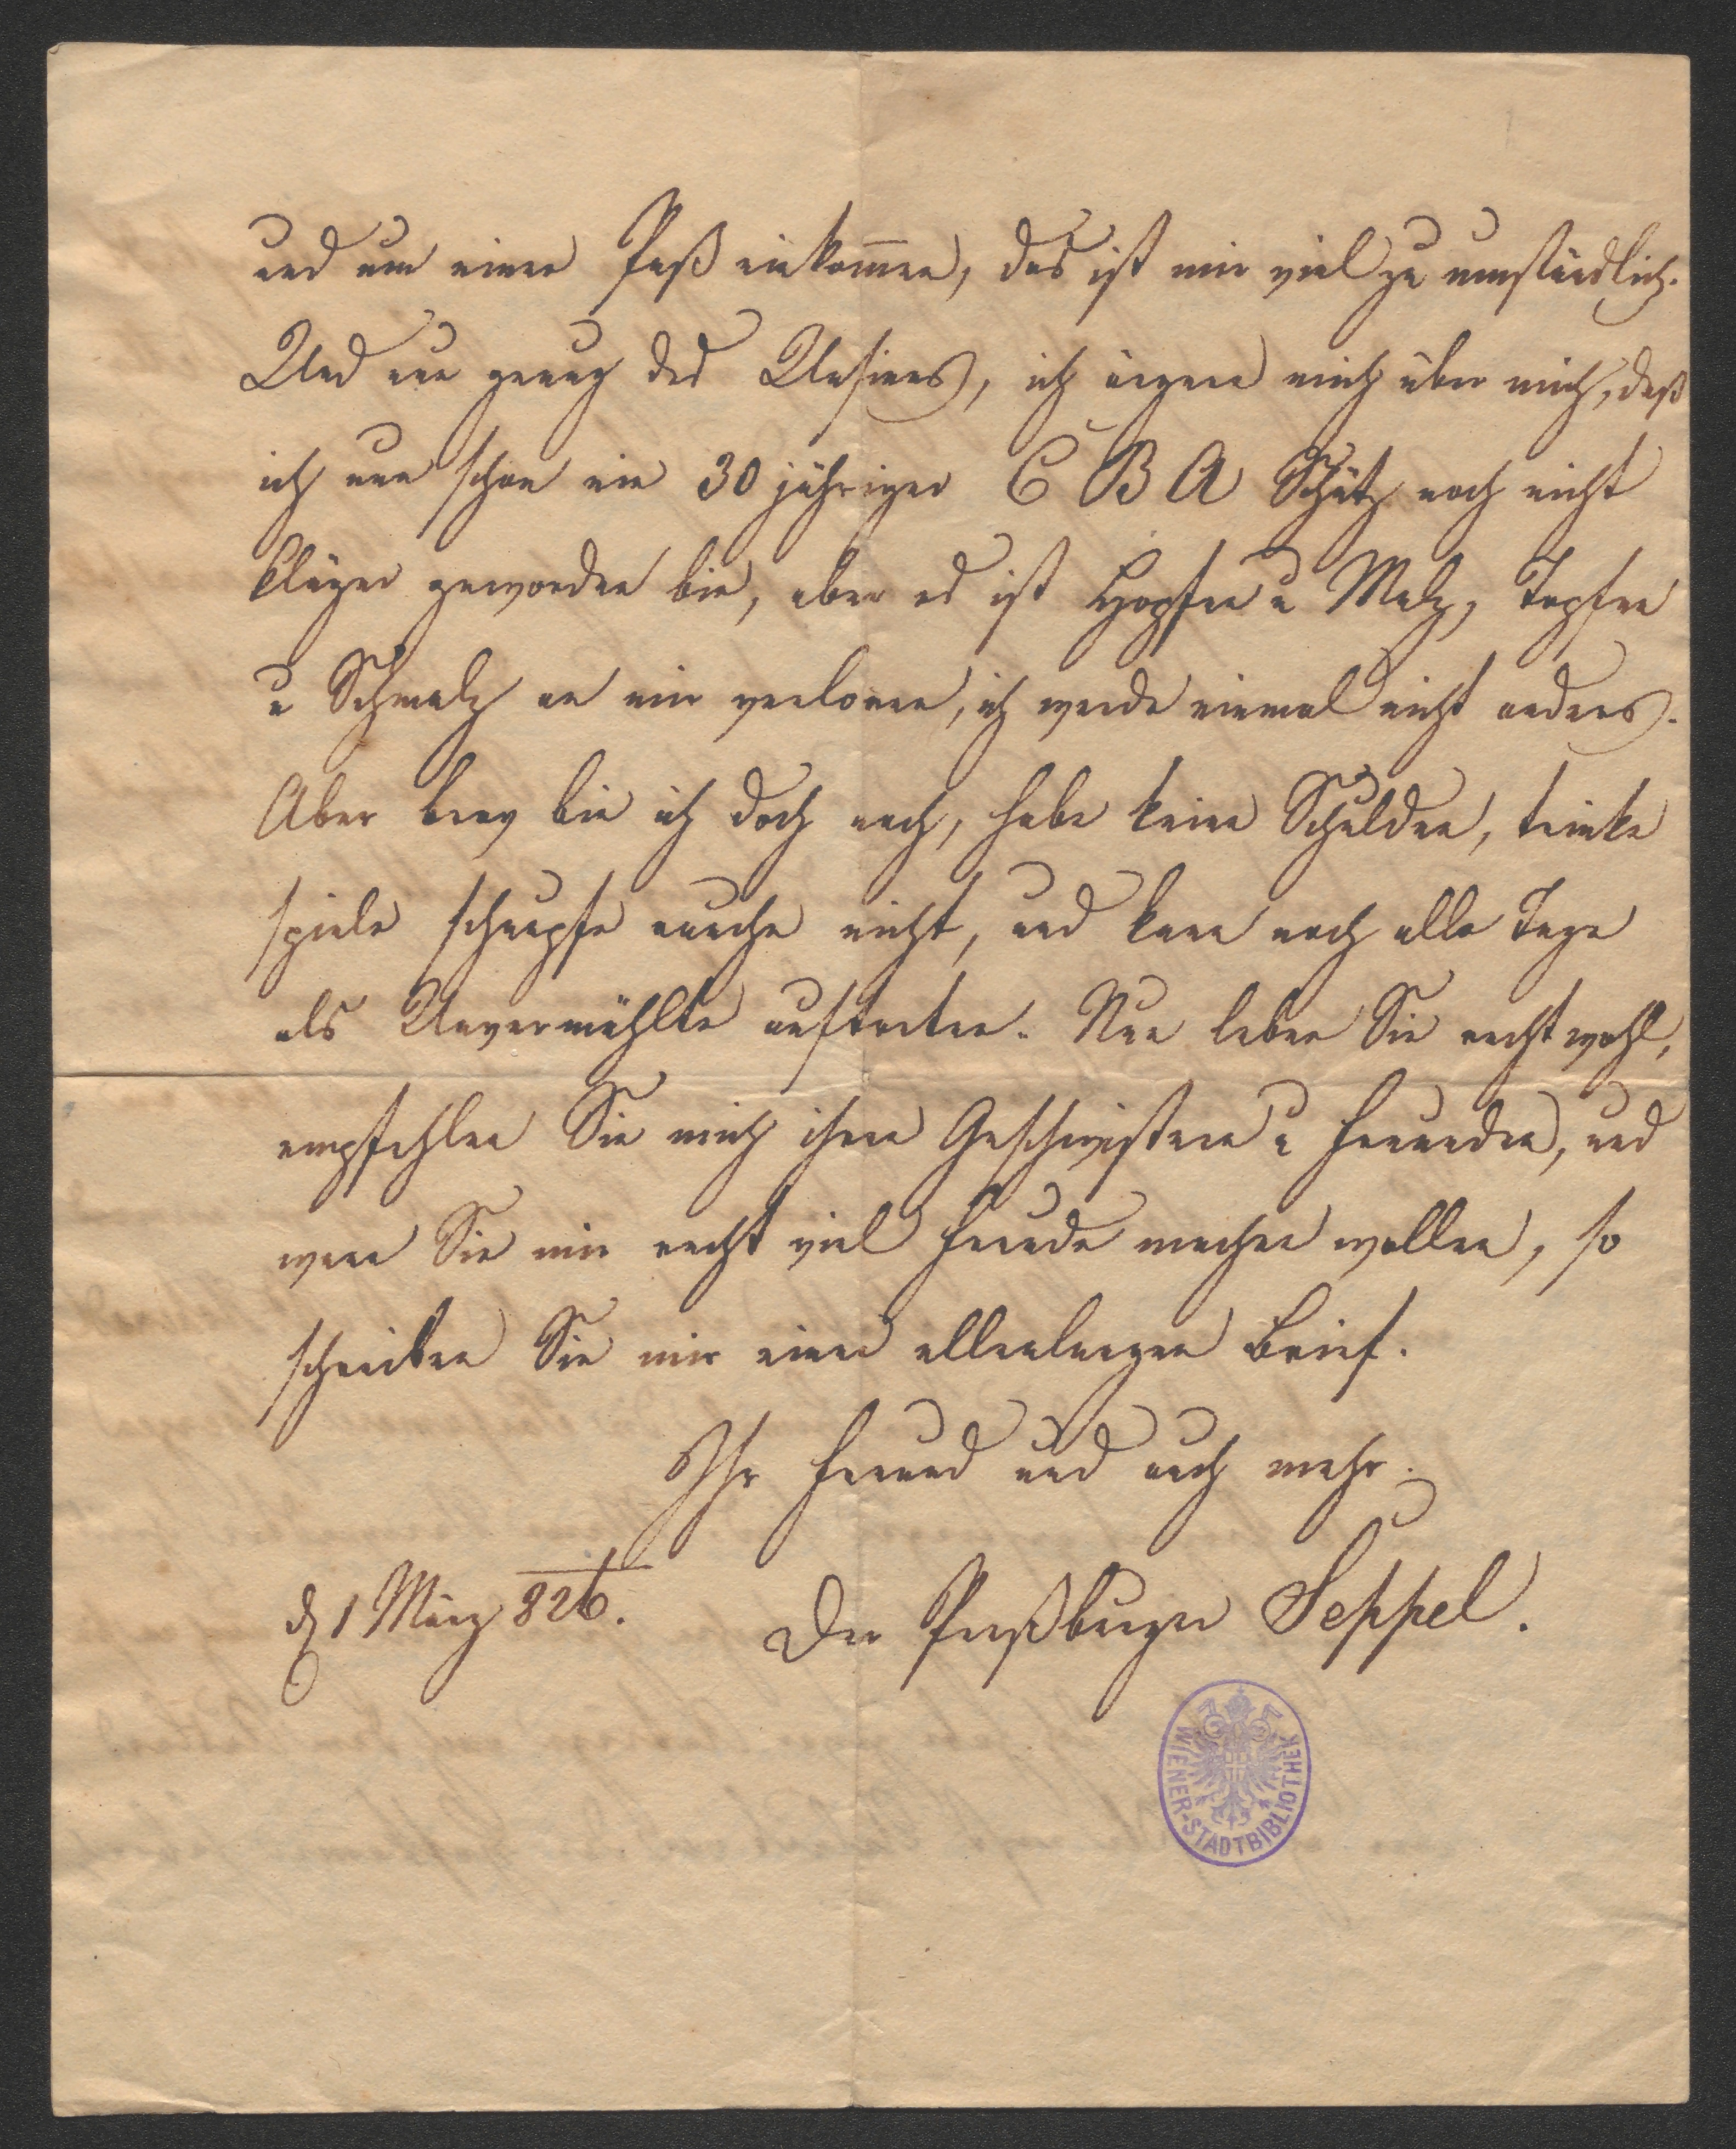 und um einen Paß einkom̅en, das ist mir viel zu umständlich.
Und nun genug des Unsinns, ich ärgere mich über mich, daß
ich nun schon ein 30 jähriger C B A Schütz noch nicht
klüger geworden bin, aber es ist Hopfen u Malz, Topfen
u Schmalz an mir verloren, ich werde einmal nicht anders.
Aber brav bin ich doch noch, habe keine Schulden, trinke
spiele schnupfe rauche nicht, und kann noch alle Tage
als Unvermählte auftreten. Nun leben Sie recht wohl,
empfehlen Sie mich ihren Geschwistern u Freunden, und
wenn Sie mir recht viel Freude machen wollen, so
schreiben Sie mir einen ellenlangen Brief.
Ihr Freund und auch mehr.
d 1 März 826.
Der Preßburger Seppel.
WIENER-STADTBIBLIOTHEK